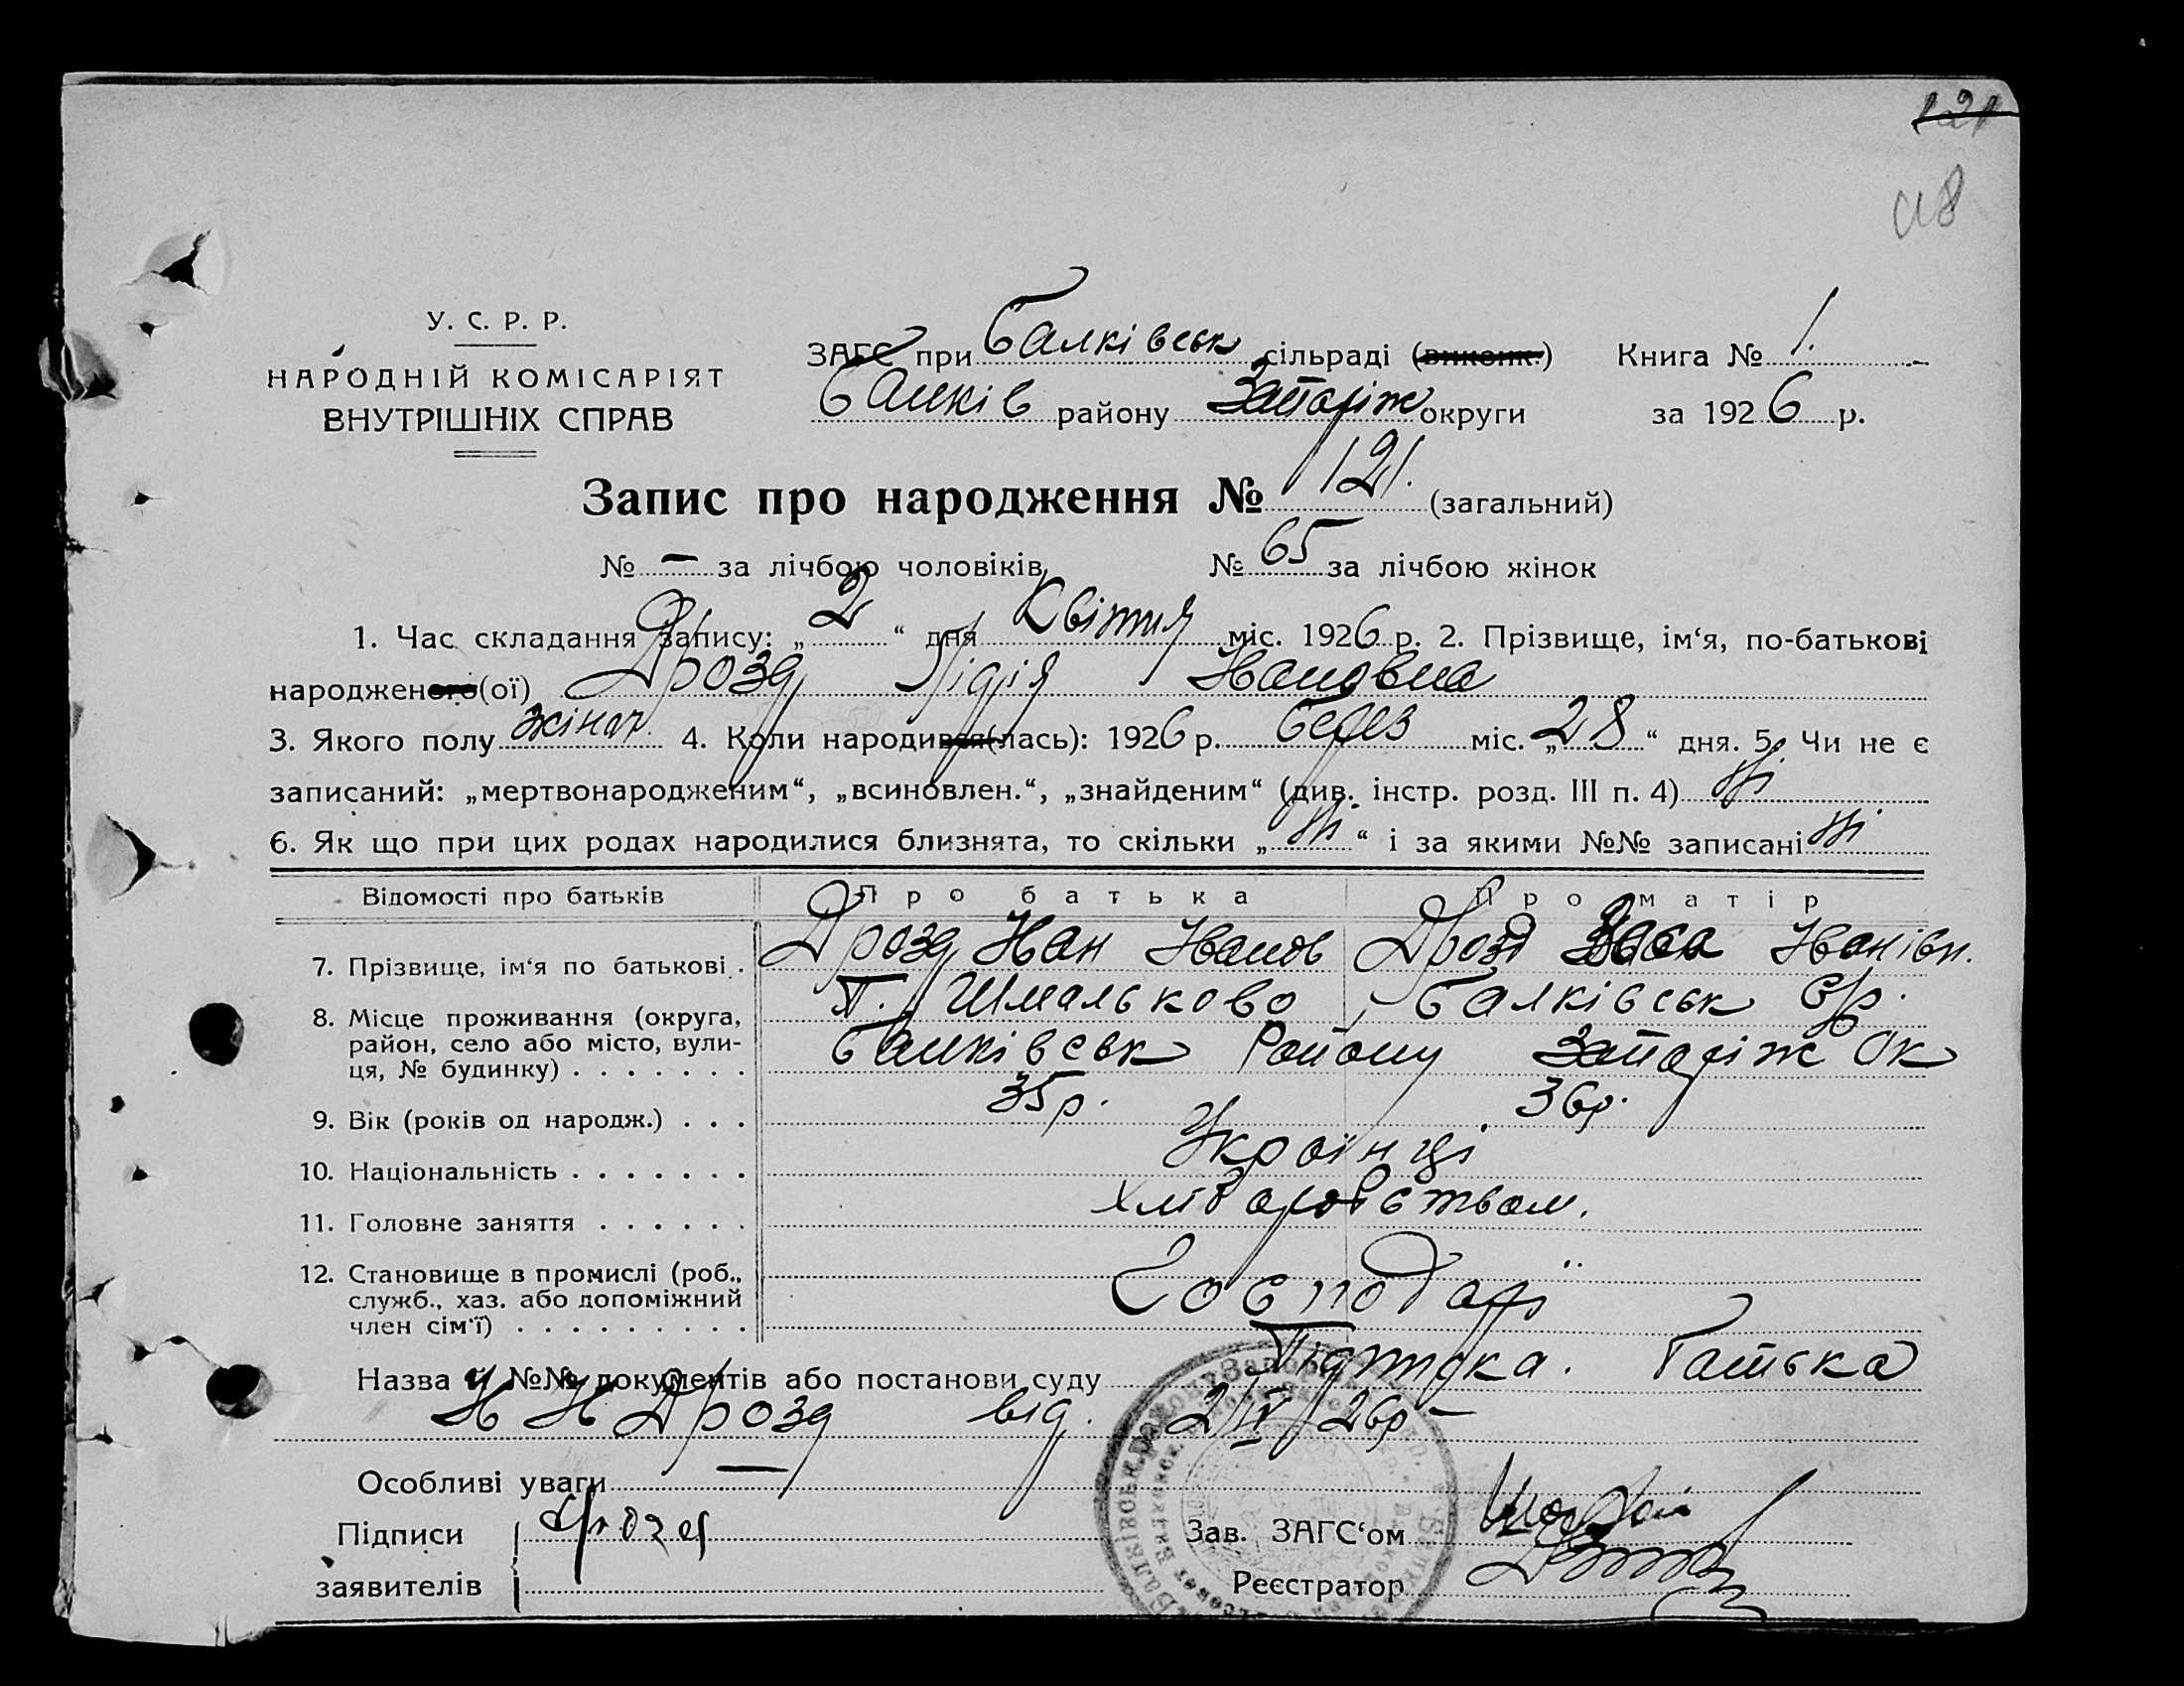 121
118
У. С. Р. Р.
НАРОДНІЙ КОМІСАРІЯТ
ВНУТРІШНІХ СПРАВ
ЗАГС при Балківськ сільраді (виконк.) Книга № 1.
Балків району Запоріж округи за 1926 р.
Запис про народження № 121. (загальний)
№ — за лічбою чоловіків № 65 за лічбою жінок
1. Час складання запису: „2“ дня Квітня міс. 1926 р. 2. Прізвище, ім‘я, по-батькові
народженого(ої) Дрозд Лідія Ивановна
3. Якого полу жіноч. 4. Коли народився(лась): 1926 р. берез міс. „28“ дня. 5. Чи не є
записаний: „мертвонародженим“, „всиновлен.“, „знайденим“ (див. інстр. розд. III п. 4) ні
6. Як що при цих родах народилися близнята, то скільки „ні“ і за якими №№ записані ні
Відомості про батьків Про батька Про матір
7. Прізвище, ім‘я по батькові . Дрозд Иван Иванов Дрозд Иванівн.
8. Місце проживання (округа, П. Шмальково, Балківськ с/р.
район, село або місто, вули- Балківськ Району Запоріж Ок
ця, № будинку) . . . . . . .
9. Вік (років од народж.) . . . 35р. 36р.
10. Національність . . . . . . . Українці
11. Головне заняття . . . . . . хліборобством.
12. Становище в промислі (роб., Господарі
служб., хаз. або допоміжний
член сім‘ї) . . . . . . . . .
Назва й №№ документів або постанови суду Підписка. батька
И И Дрозд від. 2/IV/26р —
Особливі уваги —
Підписи Дрозд Зав. ЗАГС‘ом
заявителів Реєстратор